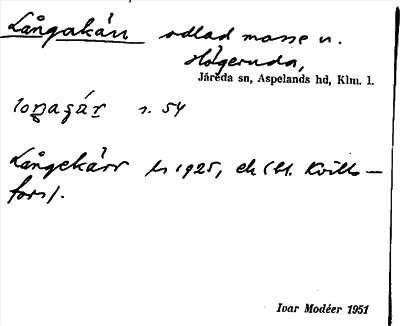 Långakärr odlad mosse u.
Högeruda,
Järeda sn, Aspelands hd, Klm. l.
s. 54
Långekärr ls 1925, ek (bl. Kvills-
fors).
Ivar Modéer 1951